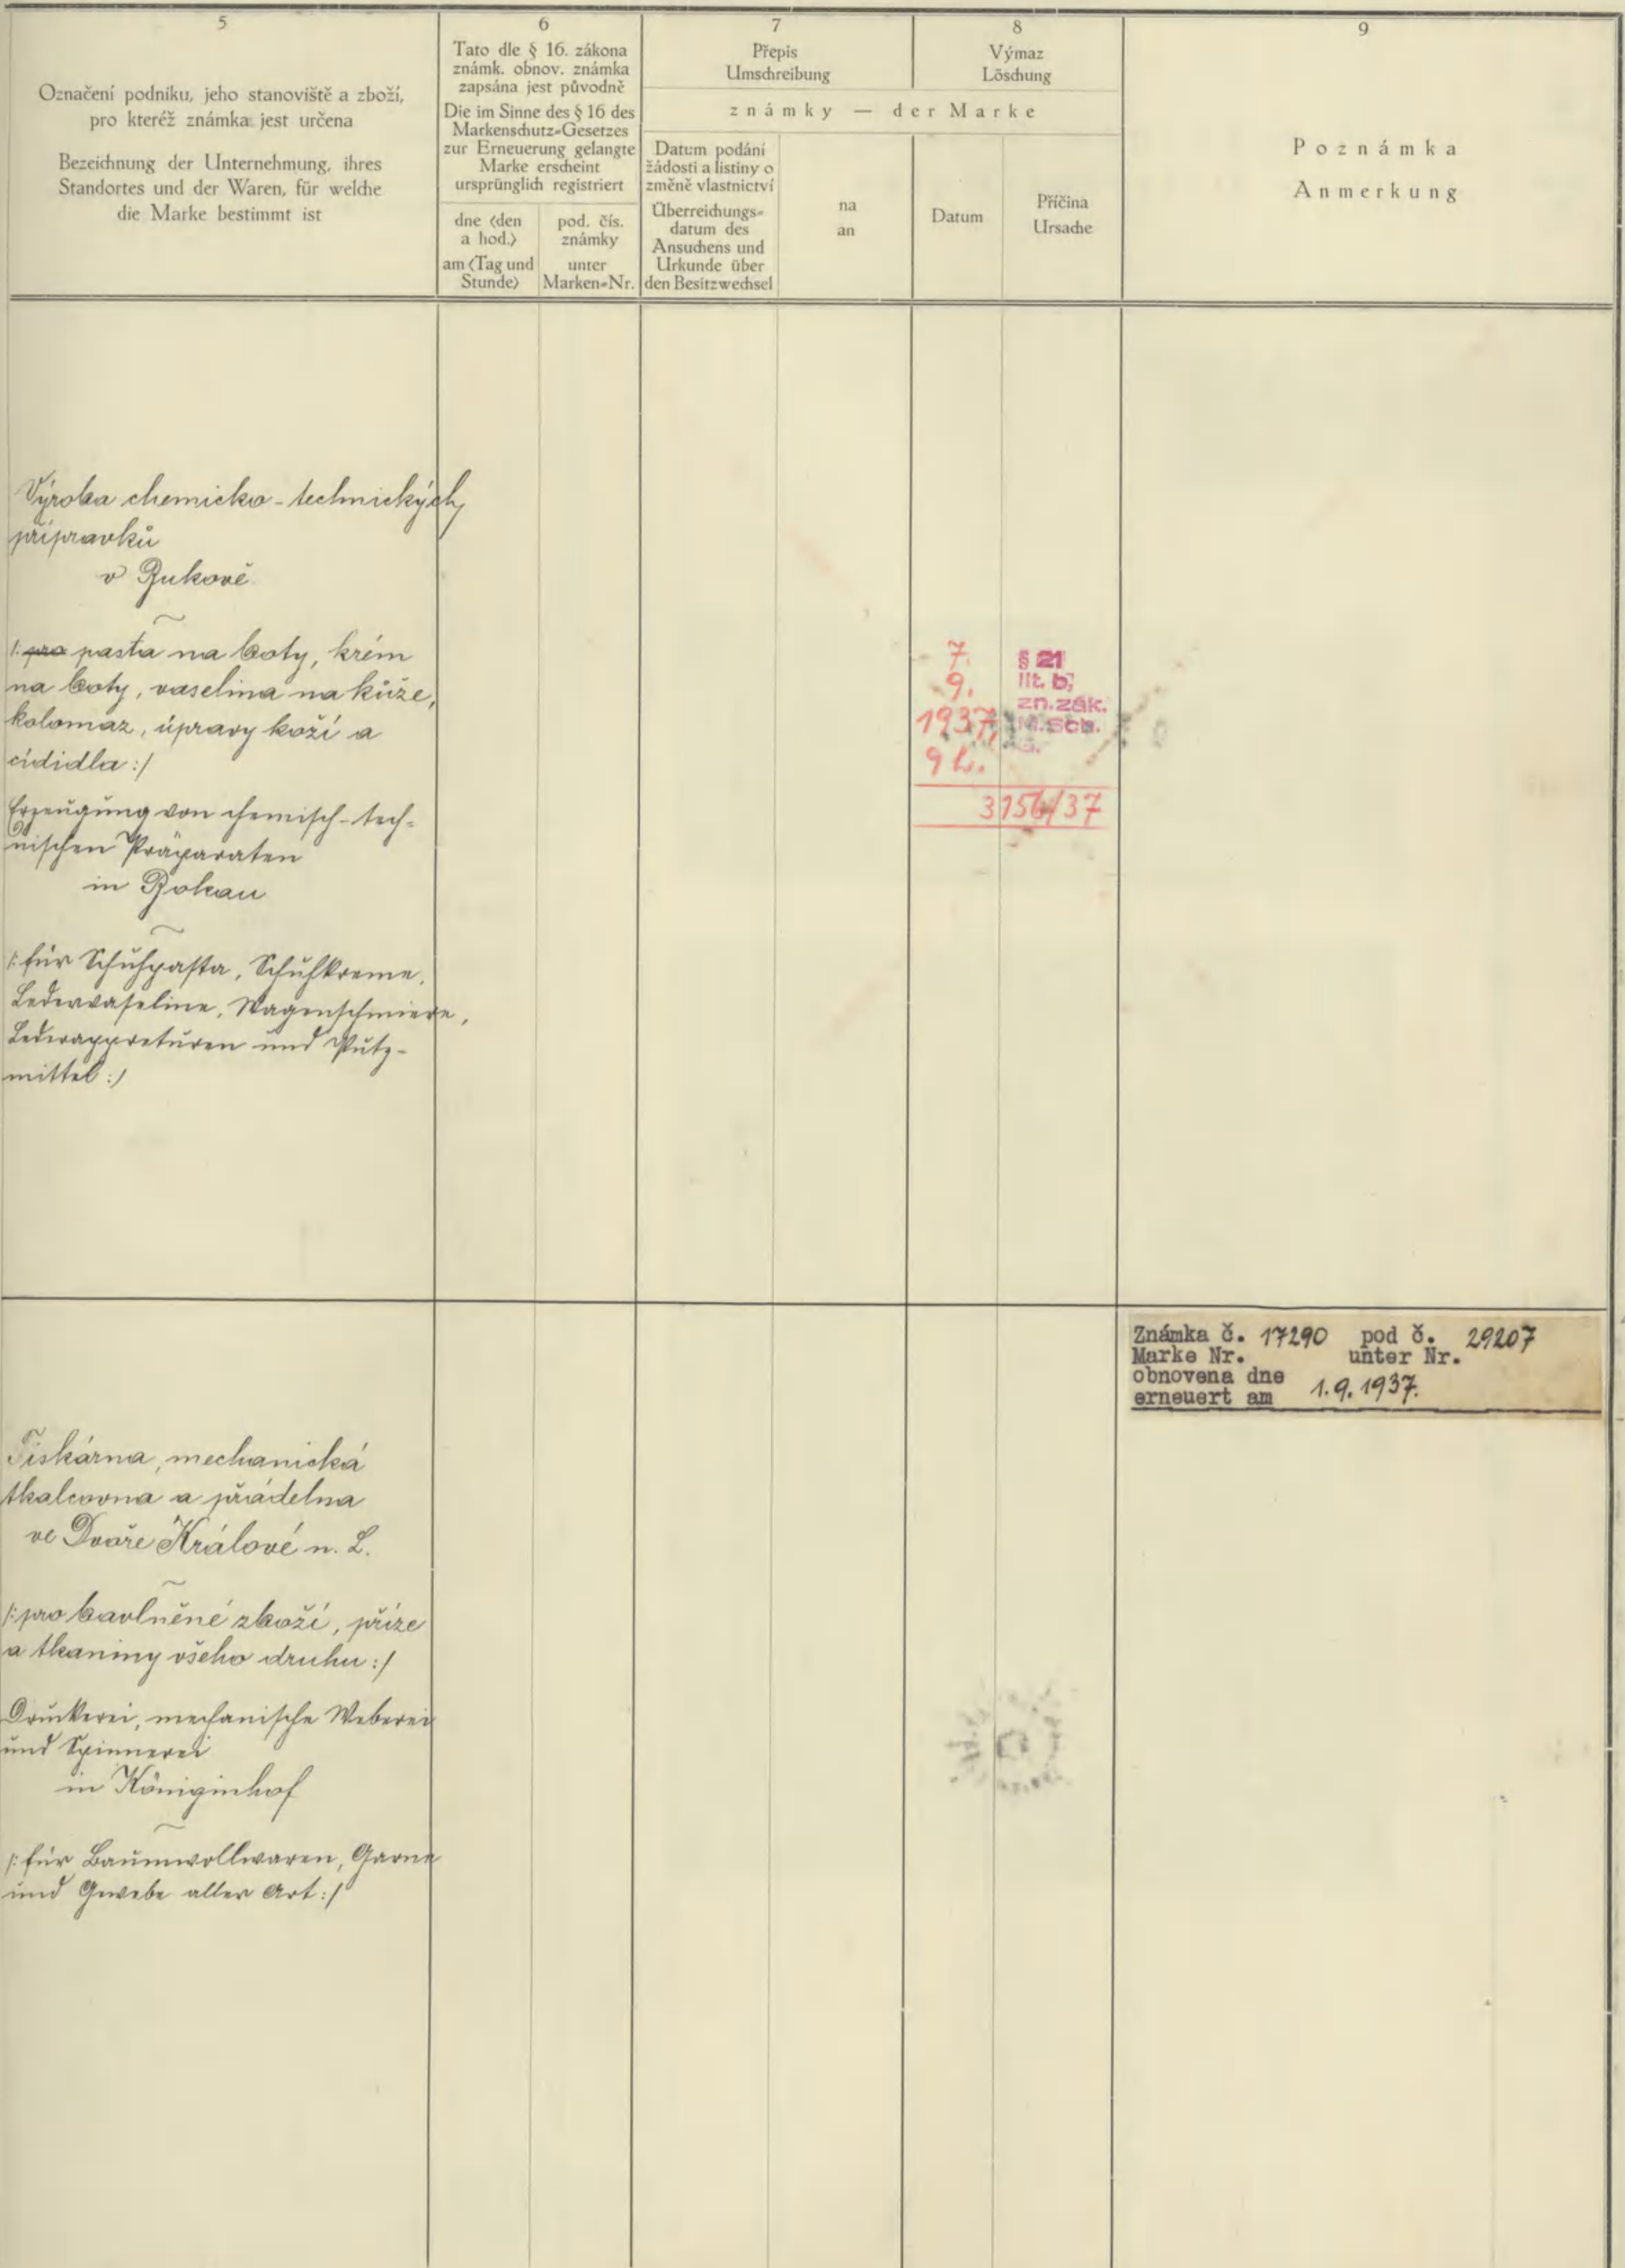 5
Označení podniku, jeho stanoviště a zboží,
pro kteréž známka jest určena
Bezeichnung der Unternehmung, ihres
Standortes und der Waren, für welche
die Marke bestimmt ist
6
Tato dle § 16. zákona
známk. obnov. známka
zapsána jest původně
Die im Sinne des § 16 des
Markenschutz=Gesetzes
zur Erneuerung gelangte
Marke erscheint
ursprünglich registriert
dne (den
a hod.)
am (Tag und
Stunde)
pod. čís.
známky
unter
Marken=Nr.
7
Přepis
Umschreibung
8
Výmaz
Löschung
známky — der Marke
Datum podání
žádosti a listiny o
změně vlastnictví
Überreichungs=
datum des
Ansuchens und
Urkunde über
den Besitzwechsel
na
an
Datum
Příčina
Ursache
9
Poznámka
Anmerkung
Výroba chemicko-technických
přípravků
v
/: pro pasta na boty, krém
na boty, vaselina na kůže,
kolomaz, úpravy koží a
cídidla :/
Erzeugung von chemisch-tech=
nischen Präparaten
in
/: für Schuhpasta, Schuhkreme,
Ledervaseline, Wagenschmiere,
Lederappreturen und Putz-
mittel :/
7.
9.
1937,
9 h.
§ 21
lit. b,
zn. zák.
M. Sch.
G.
3156/37
Známka č. 17290 pod č. 29207
Marke Nr. unter Nr.
obnovena dne
erneuert am 1.9.1937.
Tiskárna, mechanická
tkalcovna a přádelna
ve Dvoře Králové n. L.
/: pro bavlněné zboží, příze
a tkaniny všeho druhu :/
Druckerei, mechanische Weberei
und Spinnerei
in Königinhof
/: für Baumwollwaren, Garne
und Gewebe aller Art :/